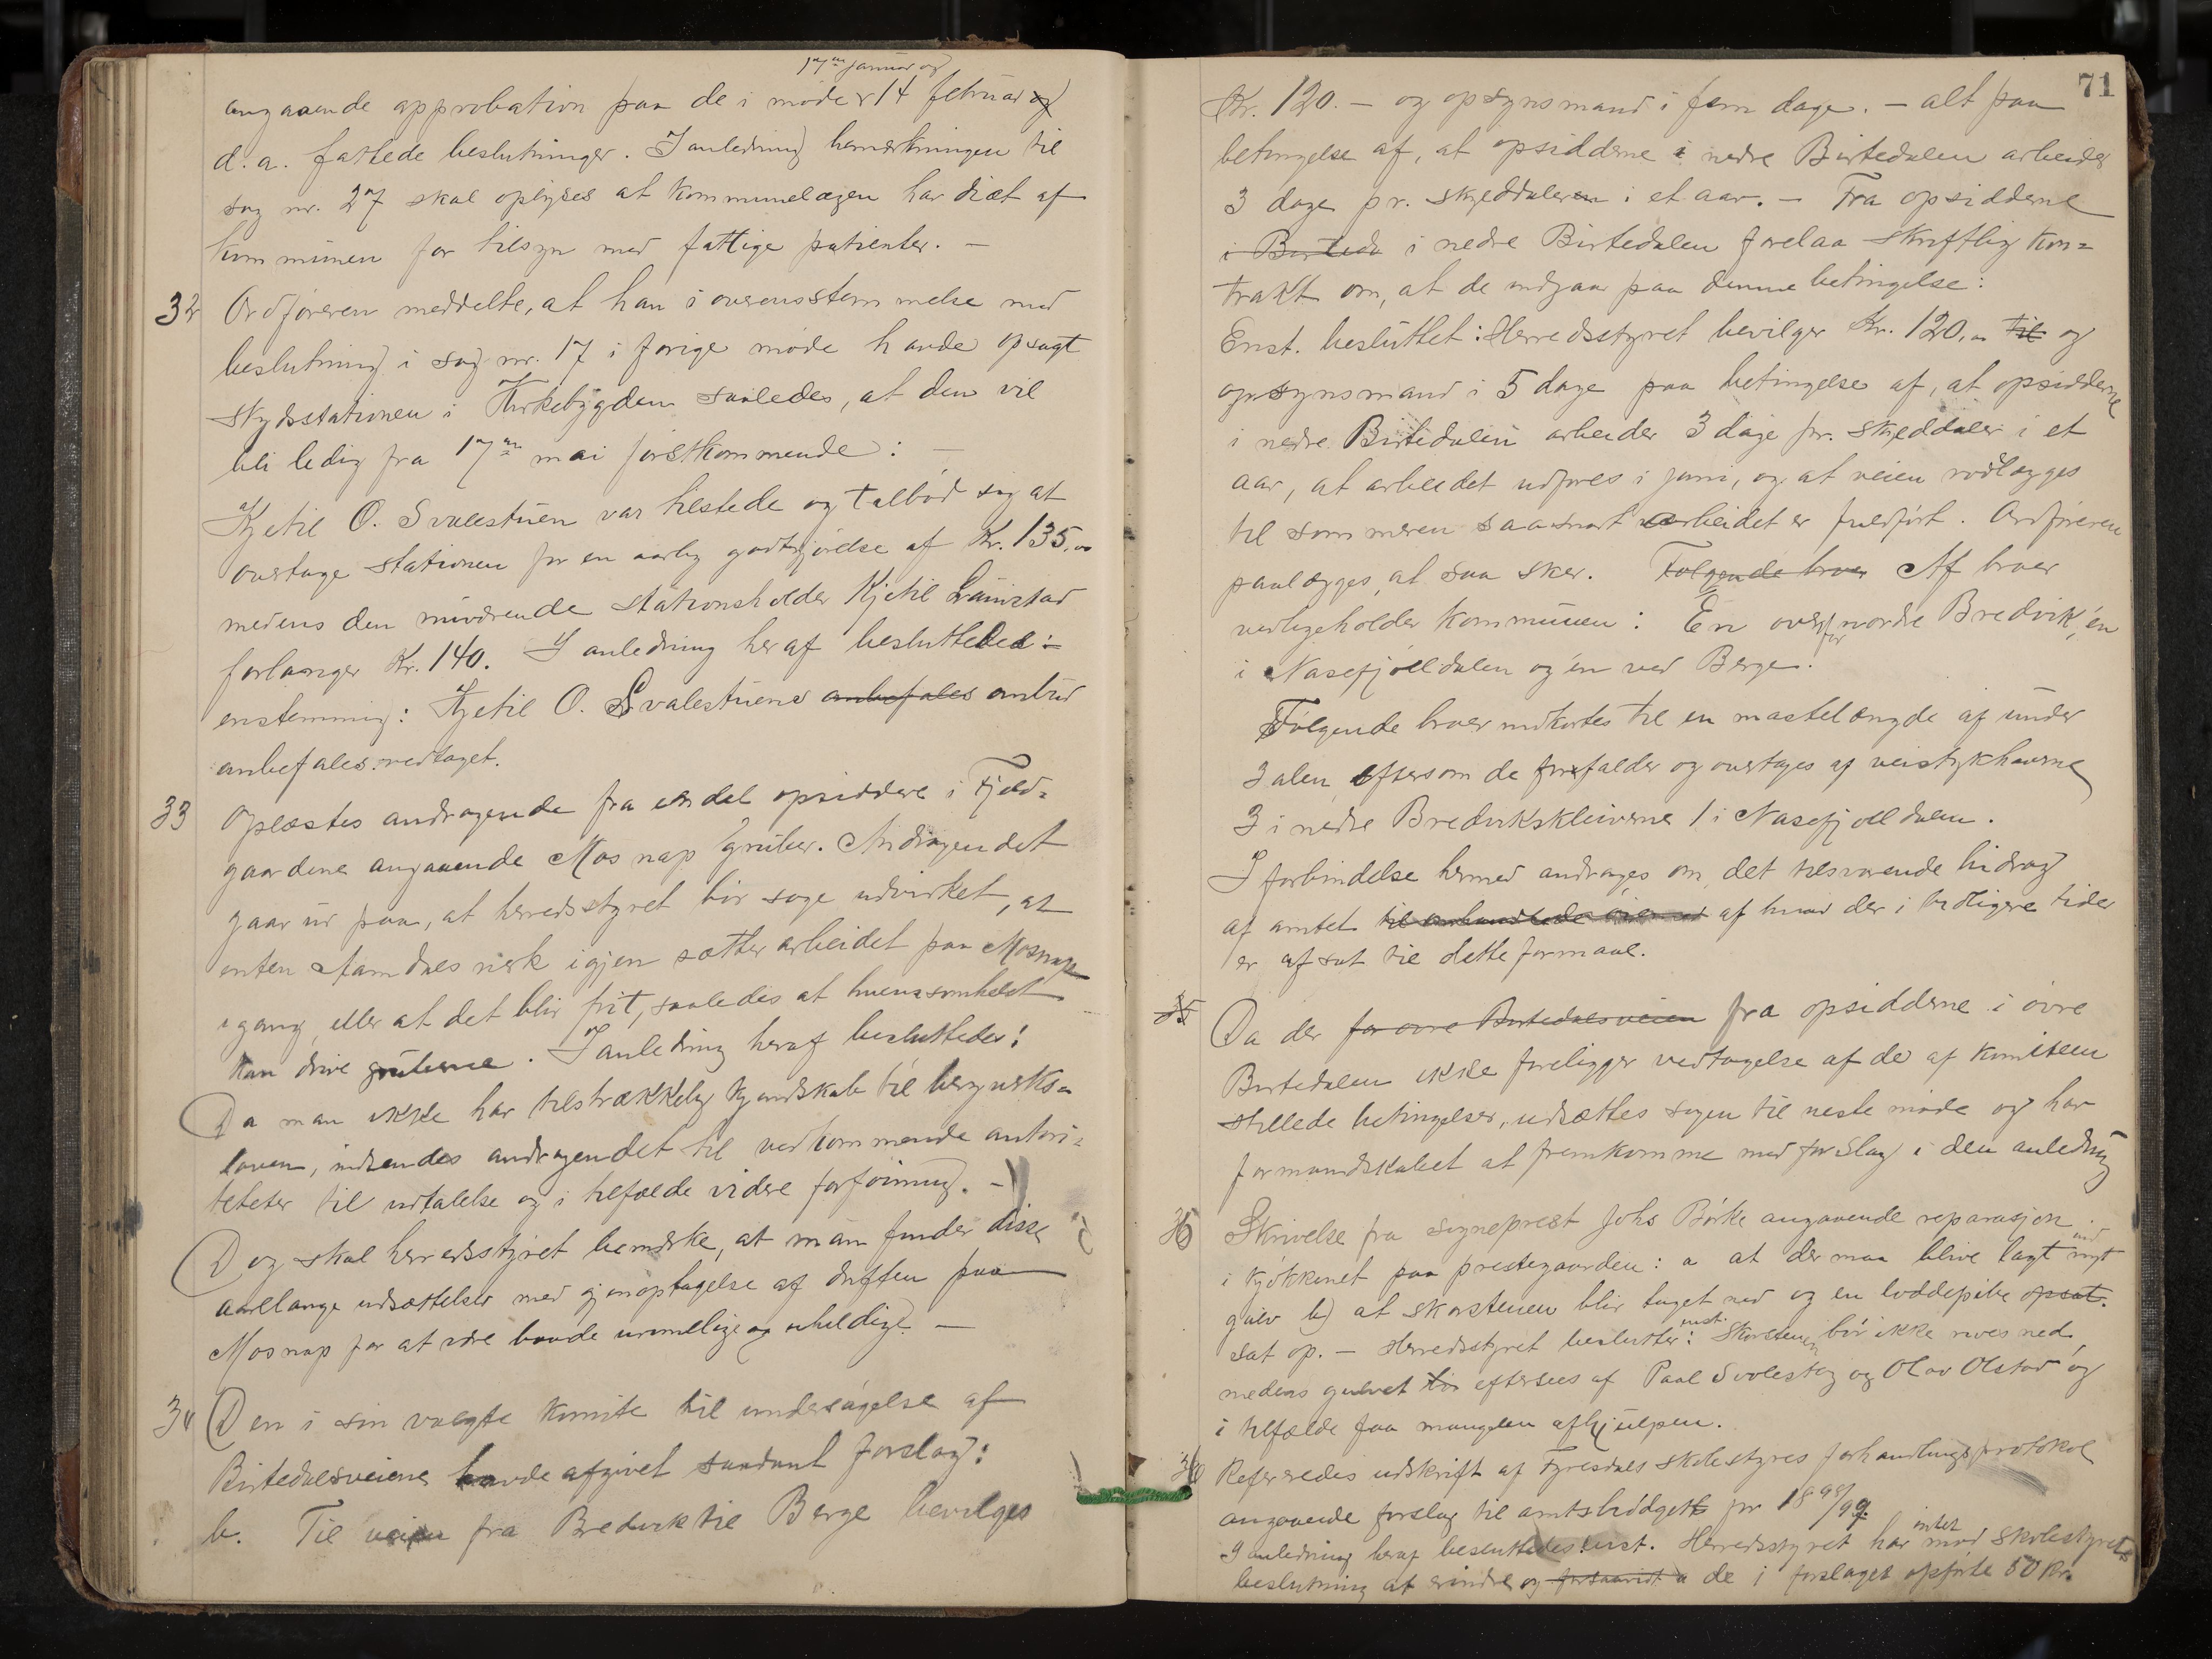 17de januar og
angaaende approbation paa de i møder 14 februar og
d. a. fattede beslutninger. I anledning bemerkningen til
sag nr. 27 skal oplyses at kommunelægen har diæt af
kommunen for tilsyn med fattige patienter. –
32 Ordføreren meddelte, at han i overensstemmelse med
beslutning i sag nr. 17 i forige møde havde opsagt
skydsstationen i Kirkebygden saaledes, at den vil
bli ledig fra 17de mai førstkommende: –
Kjetil O. Svalestuen var tilstede og tilbød sig at
overtage stationen for en aarlig godtgjørelse af Kr. 135,00
medens den nuværende stationsholder Kjetil Launstad
forlanger Kr. 140. I anledning heraf besluttedes:
enstemmig: Kjetil O. Svalestuens anbefales anbud
anbefales vedtaget.
33 Oplæstes andragende fra endel opsiddere i Fjeld=
gaardene angaaende Mosnap gruber. Andragendet
gaar ud paa, at herredsstyret bør søge udvirket, at
enten Aamdals verk igjen sætter arbeidet paa Mosnap
igang, eller at det blir frit, saaledes at hvemsomhelst
kan drive gruberne. I anledning heraf besluttedes:
Da man ikke har tilstrækkelig kjendskab til bergverks=
loven, indsendes andragendet til vedkommende autori=
teter til udtalelse og i tilfælde videre forføining. –
Dog skal herredsstyret bemerke, at man finder disse
aarelange udsættelser med gjenoptagelse af driften paa
Mosnap for at være baade urimelige og uheldige. –
34 Den i sin valgte komite til undersøgelse af
Birtedalsveiene havde afgivet saadant forslag:
b. Til veien fra Bredvik til Berge bevilges
71
Kr. 120. – og opsynsmand i fem dage. – alt paa
betingelse af, at opsidderne i nedre Birtedalen arbeider
3 dage pr. skylddaleren i et aar. – Fra opsidderne
i Birteda i nedre Birtedalen forelaa skriftlig kon=
trakt om, at de indgaar paa denne betingelse:
Enst. besluttet: Herredsstyret bevilger Kr. 120,00 til og
opsynsmand i 5 dage paa betingelse af, at opsidderne
i nedre Birtedalen arbeider 3 dage pr. skylddaler i et
aar, at arbeidet udføres i juni, og at veien rodlægges
til sommeren saasnart arbeidet er fuldført. Ordføreren
paalægges, at saa sker. Følgende broer Af broer
vedligeholder kommunen: Én over for nordre Bredvik, én
i Nasefjølldalen og én ved Berge.
Følgende broer indkortes til en mastelængde af under
3 alen, eftersom de forfalder og overtages af veistykhaverne
3 i nedre Bredvikskleiverne 1 i Nasefjølldalen.
I forbindelse hermed andrages om det tilsvarende bidrag
af amtet af hvad der i tidligere tider
er afsat til dette formaal.
35 Da der for øvre Birtedalsveien fra opsidderne i øvre
Birtedalen ikke foreligger vedtagelse af de af komiteen
stillede betingelser, udsættes sagen til neste møde og har
formandskabet at fremkomme med forslag i den anledning
36 Skrivelse fra sogneprest Johs Børke angaaende reparasjon
i kjøkkenet paa prestegaarden: a at der maa blive lagt ind nyt
gulv b) at skorstenen blir taget ned og en loddepibe opsat.
sat op. – Herredsstyret beslutter enst.: Skorstenen bør ikke rives ned
medens gulvet bør eftersees af Paal Svolestog og Olav Olstad og
i tilfælde faa manglen afhjulpen.
36 Refereredes udskrift af Fyresdals skolestyres forhandlingsprotokol
angaaende forslag til amtsbudgett pr 1898/99.
I anledning heraf besluttedes enst. Herredsstyret har intet mod skolestyrets
beslutning at erindre og forsaavidt a de i forslaget opførte 50 Kr.